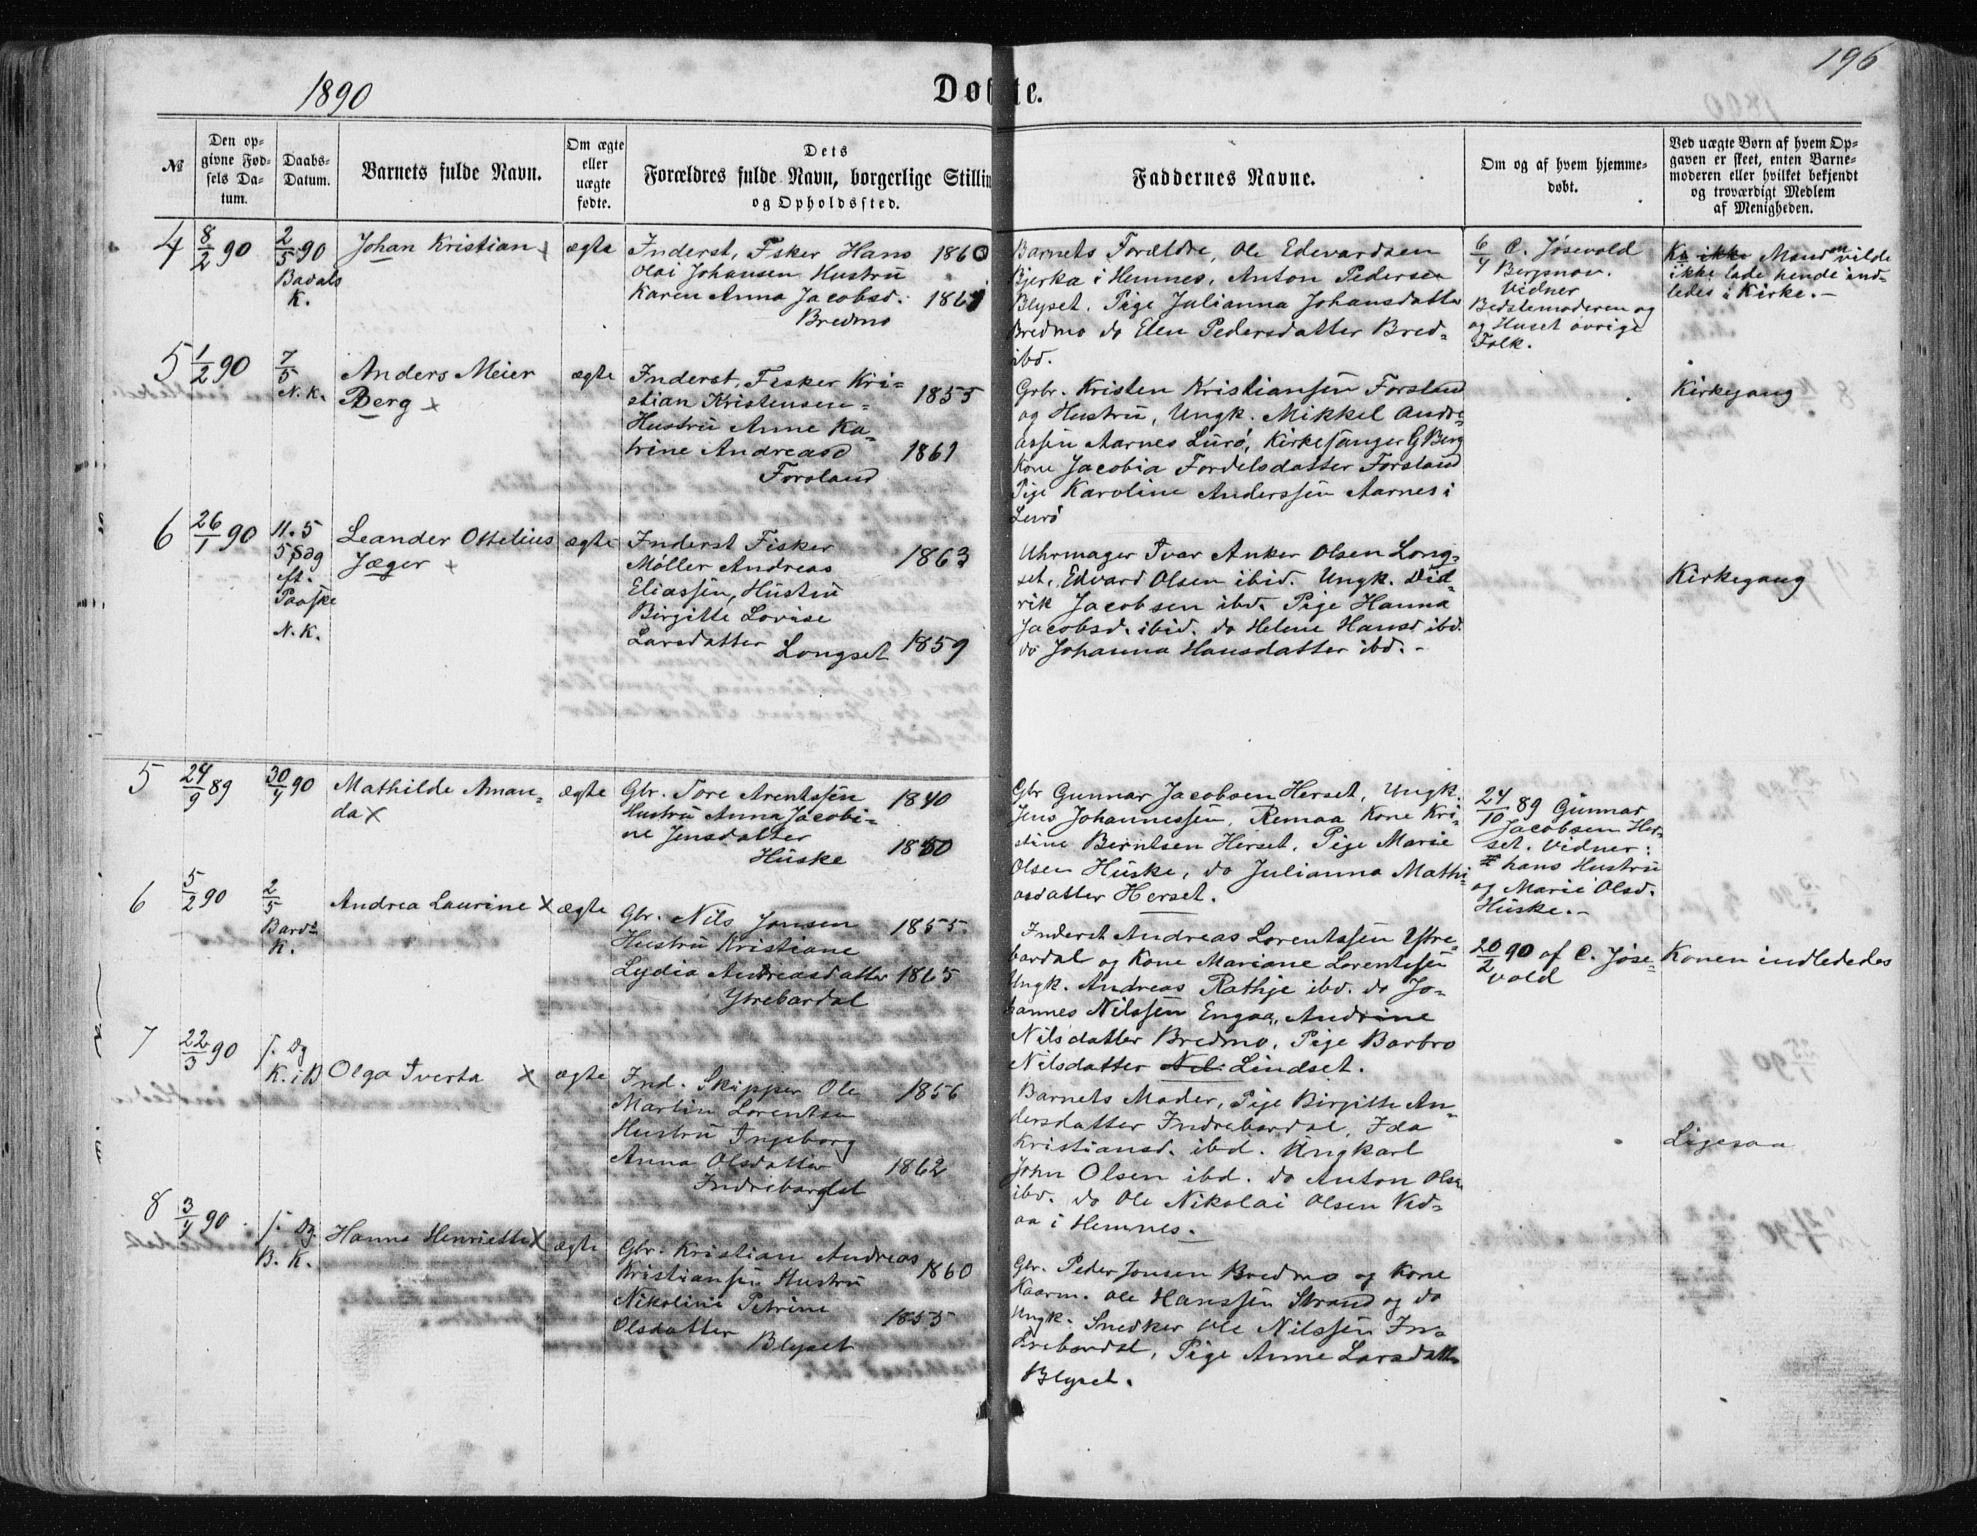 196
1890
Døbte.
№
Den op-
givne Fød-
sels Da-
tum.
Daabs-
Datum.
Barnets fulde Navn.
Om ægte
eller
uægte
fødte.
Dets
Forældres fulde Navn, borgerlige Stillin
og Opholdssted.
Faddernes Navne.
Om og af hvem hjemme-
døbt.
Ved uægte Børn af hvem Op-
gaven er skeet, enten Barne-
moderen eller hvilket bekjendt
og troværdigt Medlem
af Menigheden.
4
8/2 90
2/5 90
Badals
K.
Johan Kristian
ægte
Inderst, Fisker Hans 1860
Olai Johansen Hustru
Karen Anna Jacobsd. 1861
Bredmo
Barnets Forældre, Ole Edevardsen
Bjerka i Hemnes, Anton Pedersen
Blyset, Pige Julianna Johansdatter
Bredmo do Elen Pedersdatter Bred-
ibd.
6/4 C. Jøsevold
Bergsnov.
Vidner
Bedstemoderen og
og Huset øvrige
Folk.
Ko ikke Manden vilde
ikke lade hende ind-
ledes i Kirke.-
5
1/2 90
7/5
N. K.
Anders Meier
Berg
ægte
Inderst, Fisker Kri-
stian Kristensen 1855
Hustru Anne Ka-
trine Andreasd 1861
Forsland
Grbr. Kristen Kristiansen Forsland
og Hustru, Ungk. Mikkel Andre-
assen Aarnes Lurø, Kirkesanger G Berg
Kone Jacobia Fordelsdatter Forsland
Pige Karoline Anderssen Aarnes i
Lurø
Kirkegang
6
26/1 90
11.5
5 Sdg
eft.
Paaske
N. K.
Leander Ottelius
Jæger
ægte
Inderst Fisker 1863
Møller Andreas
Eliassen, Hustru
Birgitte Lovise
Larsdatter Longset 1859
Uhrmager Ivar Anker Olsen Long-
set, Edvard Olsen ibid. Ungk. Did-
rik Jacobsen ibd. Pige Hanna
Jacobsd. ibid. do Helene Hansd ibd.
do Johanna Hansdatter ibd. -
Kirkegang
5
24/9 89
30/4 90
Mathilde Aman-
da
ægte
Gbr. Tore Arentssen 1840
Hustru Anna Jacobi-
ne Jensdatter
Huske 1850
Gbr Gunnar Jacobsen Herset, Ungk.
Jens Johannessen, Remaa Kone Kri-
stine Berntsen Herset, Pige Marie
Olsen Huske, do Julianna Mathi-
asdatter Herset.
24/10 89 Gunnar
Jacobsen Her-
set. Vidner:
hans Hustru
og Marie Olsd.
Huske.-
6
5/2 90
2/5
Bards
K.
Andrea Laurine
ægte
Gbr. Nils Jonsen 1855
Hustru Kristiane
Lydia Andreasdatter 1865
Ytrebardal
Inderst Andreas Lorentssen Ytre-
bardal og Kone Mariane Lorentssen
Ungk. Andreas Rathje ibd. do Jo-
hannes Nilssen Engaa, Andrine
Nilsdatter Bredmo, Pige Barbro
Nilsdatter Lindset.
20/2 90 af C. Jøse-
vold
Konen indlededes
7
22/3 90
s. Dg
K. i B
Olga Iverta
ægte
Ind. Skipper Ole 1856
Martin Lorentsen
Hustru Ingeborg
Anna Olsdatter 1862
Indrebardal
Barnets Moder, Pige Birgitte An-
dersdatter Indrebardal, Ida
Kristiansd. ibd. Ungkarl
John Olsen ibd. do Anton Olsen
ibd. do Ole Nikolai Olsen Vid-
aa i Hemnes.
Ligesaa
8
3/4 90
s. Dg.
B. K.
Hanna Henriette
ægte
Gbr. Kristian Andreas
Kristiansen Hustru 1860
Nikoline Petrine
Olsdatter 1855
Blyset
Gbr. Peder Jonsen Bredmo og Kone
Kaarm. Ole Hanssen Strand og do
Ungk. Snedker Ole Nilssen In-
drebardal, Pige Anne Larsdatter
Blyset.